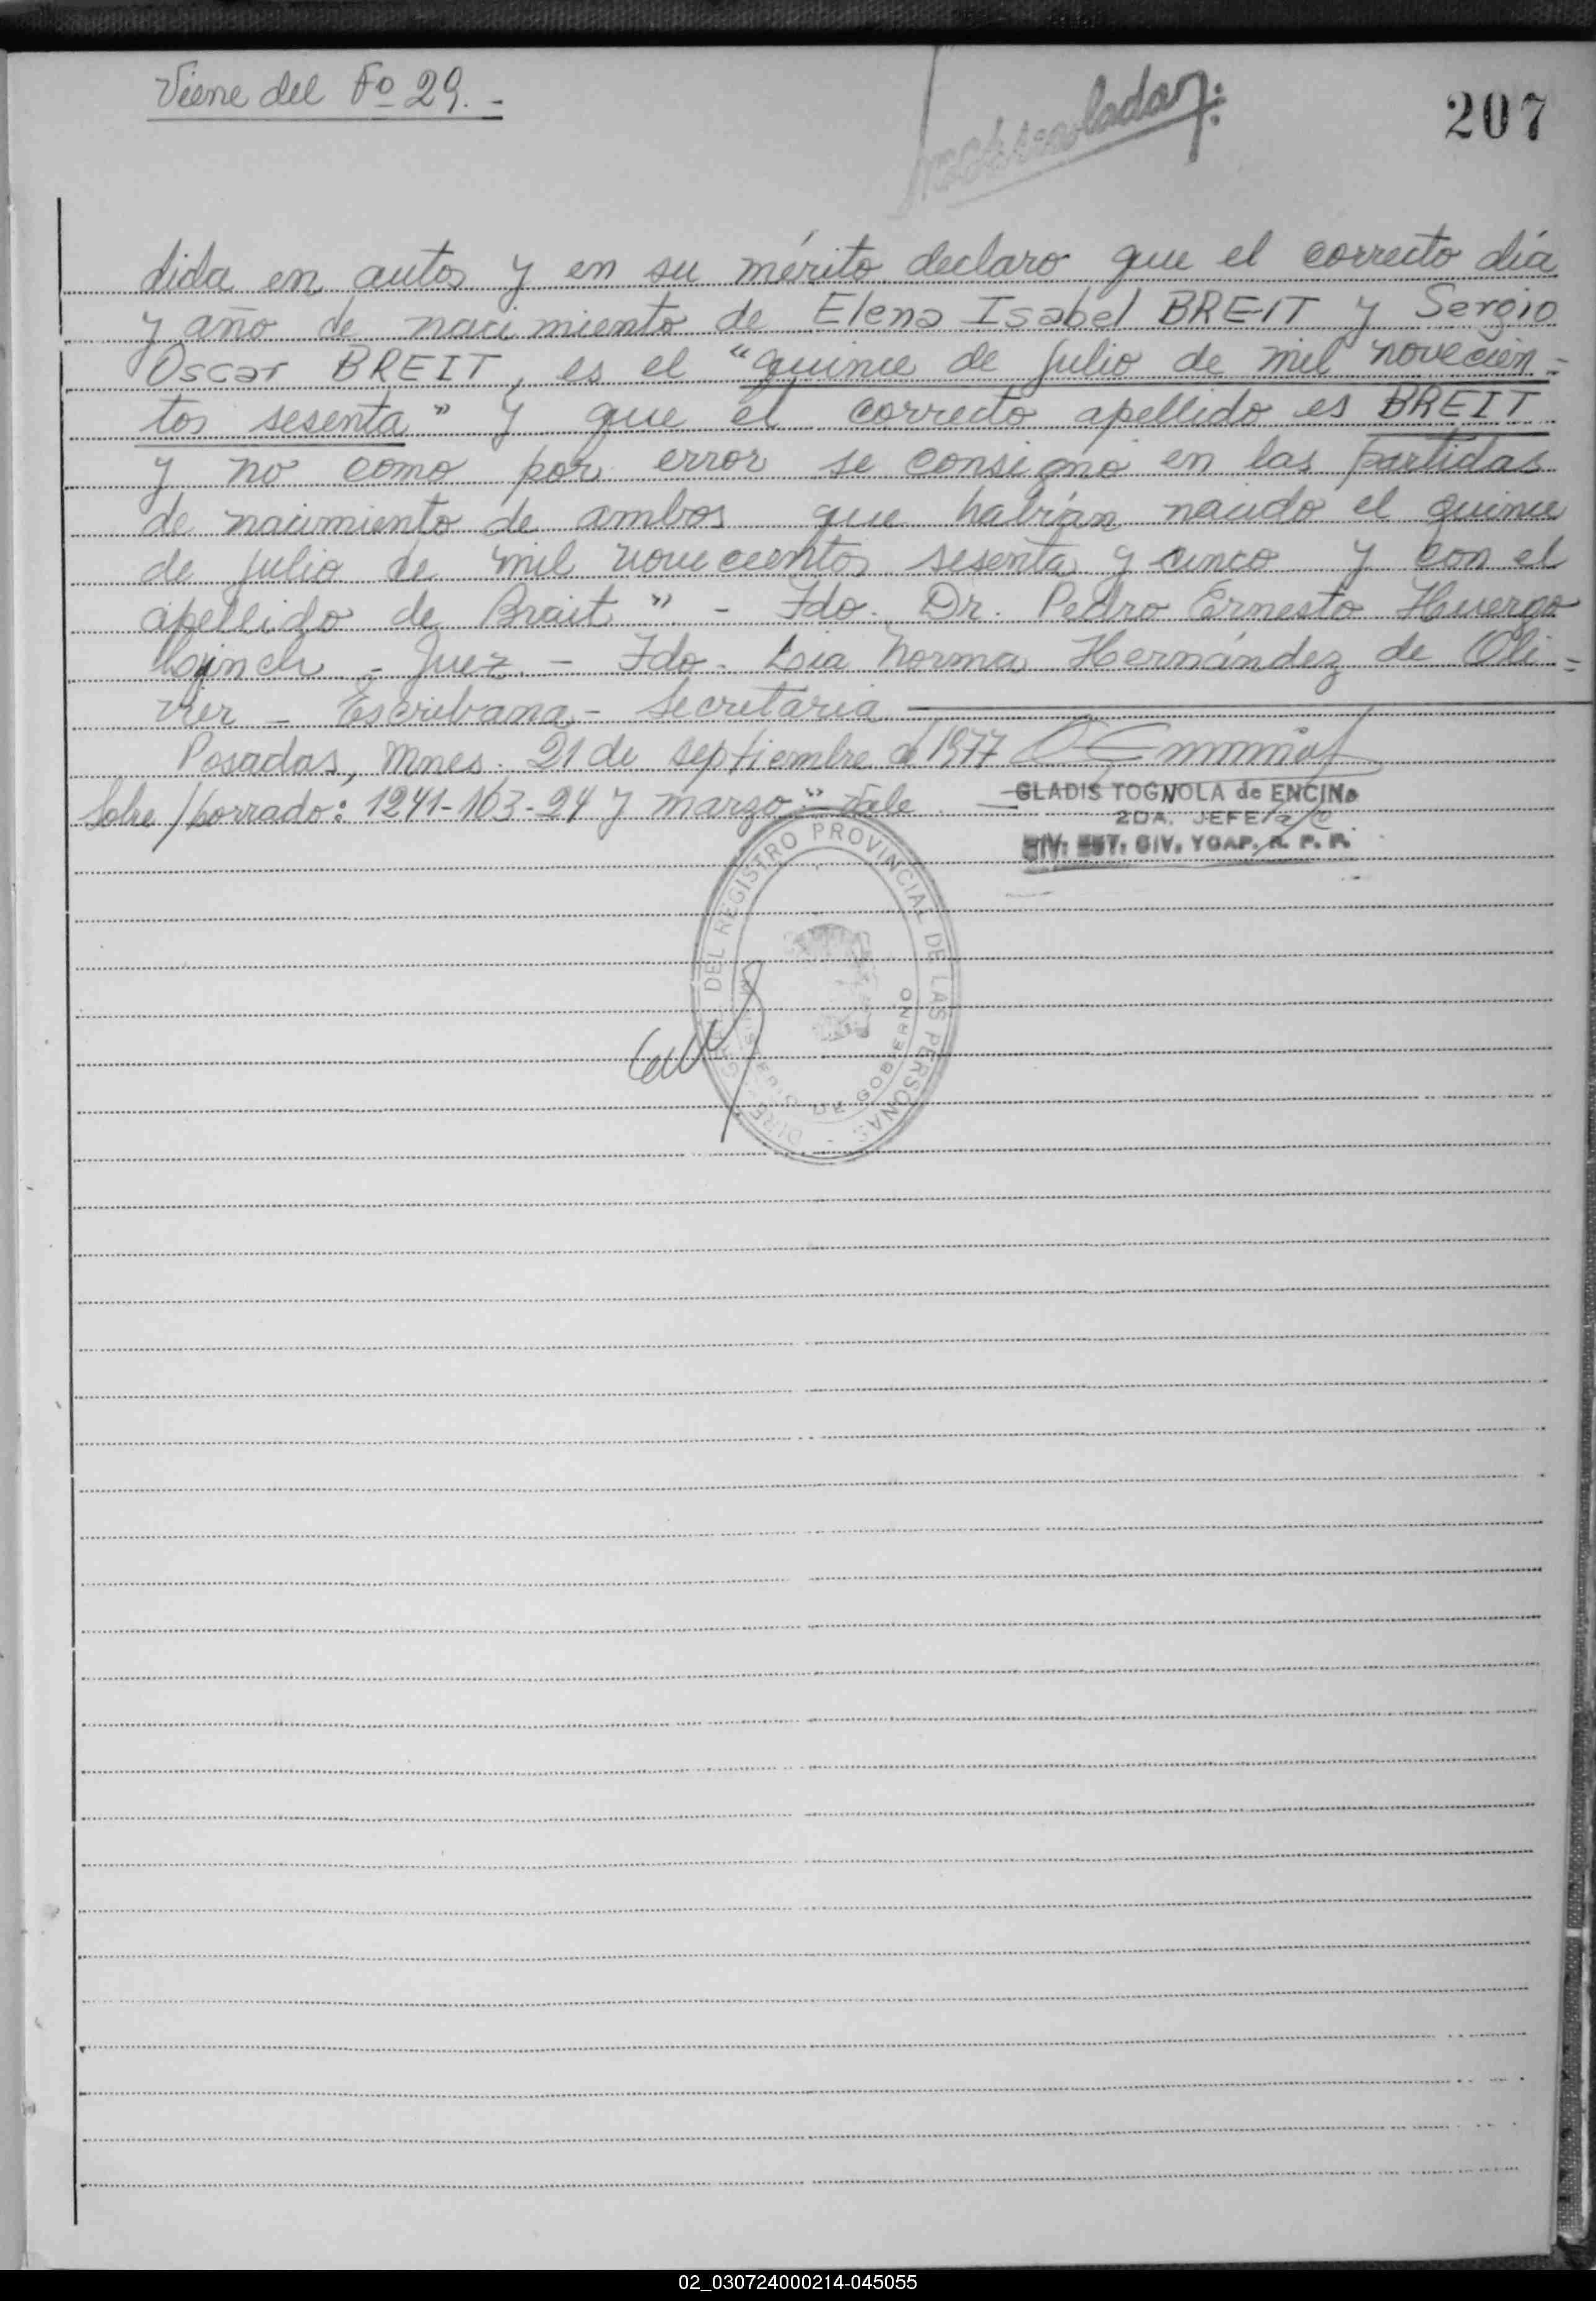 Viene del Fº 29.-
207
dida en autos y en su mérito declaro que el correcto día
y año de nacimiento de Elena Isabel BREIT y Sergio
Oscar BREIT, es el "quince de julio de mil novecien=
tos sesenta" y que el correcto apellido es BREIT
y no como por error se consignó en las partidas
de nacimiento de ambos que habrían nacido el quince
de julio de mil novecientos sesenta y cinco y con el
apellido de Brait" - Fdo. Dr. Pedro Ernesto Huergo
- Juez. - Fdo. Lia Norma Hernández de Oli=
ver - Escribana - Secretaria
Posadas, Mnes. 21 de septiembre de 1977
GLADIS TOGNOLA de ENCINA
2DA. JEFE a/c
DIV. EST. CIV. Y CAP. R. P. P.
Sobre/borrado: 1241-163-24 y marzo" Vale.
DIREC. GRAL. DEL REGISTRO PROVINCIAL DE LAS PERSONAS
MINISTERIO DE GOBIERNO
02_030724000214-045055